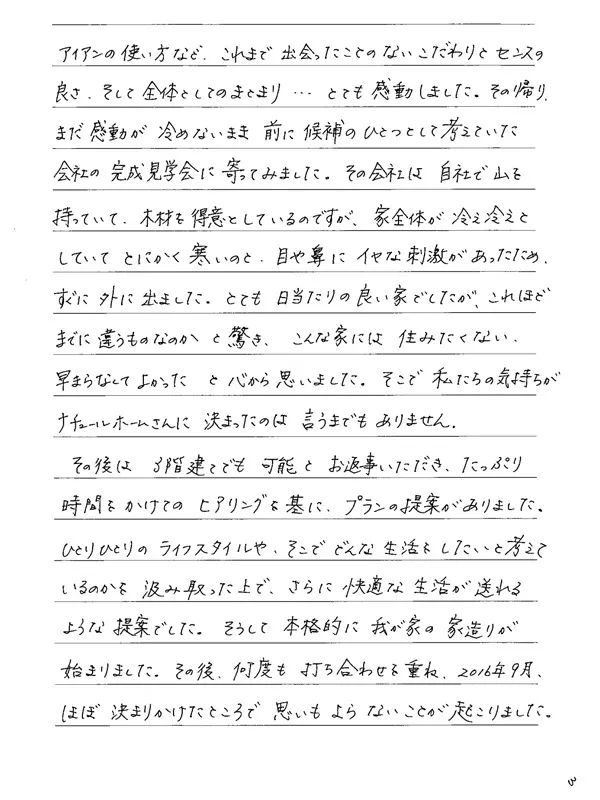 アイアンの使い方など、これまで出会ったことのないこだわりとセンスの
良さ、そして全体としてのまとまり…とても感動しました。その帰り、
まだ感動が冷めないまま前に候補のひとつとして考えていた
会社の完成見学会に寄ってみました。その会社は自社で山を
持っていて、木材を得意としているのですが、家全体が冷え冷えと
していてとにかく寒いのと、目や鼻にイヤな刺激があったため、
すぐに外に出ました。とても日当たりの良い家でしたが、これほど
までに違うものなのかと驚き、こんな家には住みたくない、
早まらなくてよかったと心から思いました。そこで私たちの気持ちが
ナチュールホームさんに決まったのは言うまでもありません。
その後は3階建てでも可能とお返事いただき、たっぷり
時間をかけてのヒアリングを基に、プランの提案がありました。
ひとりひとりのライフスタイルや、そこでどんな生活をしたいと考えて
いるのかを汲み取った上で、さらに快適な生活が送れる
ような提案でした。そうして本格的に我が家の家造りが
始まりました。その後、何度も打ち合わせを重ね、2016年9月、
ほぼ決まりかけたところで思いもよらないことが起こりました。
3